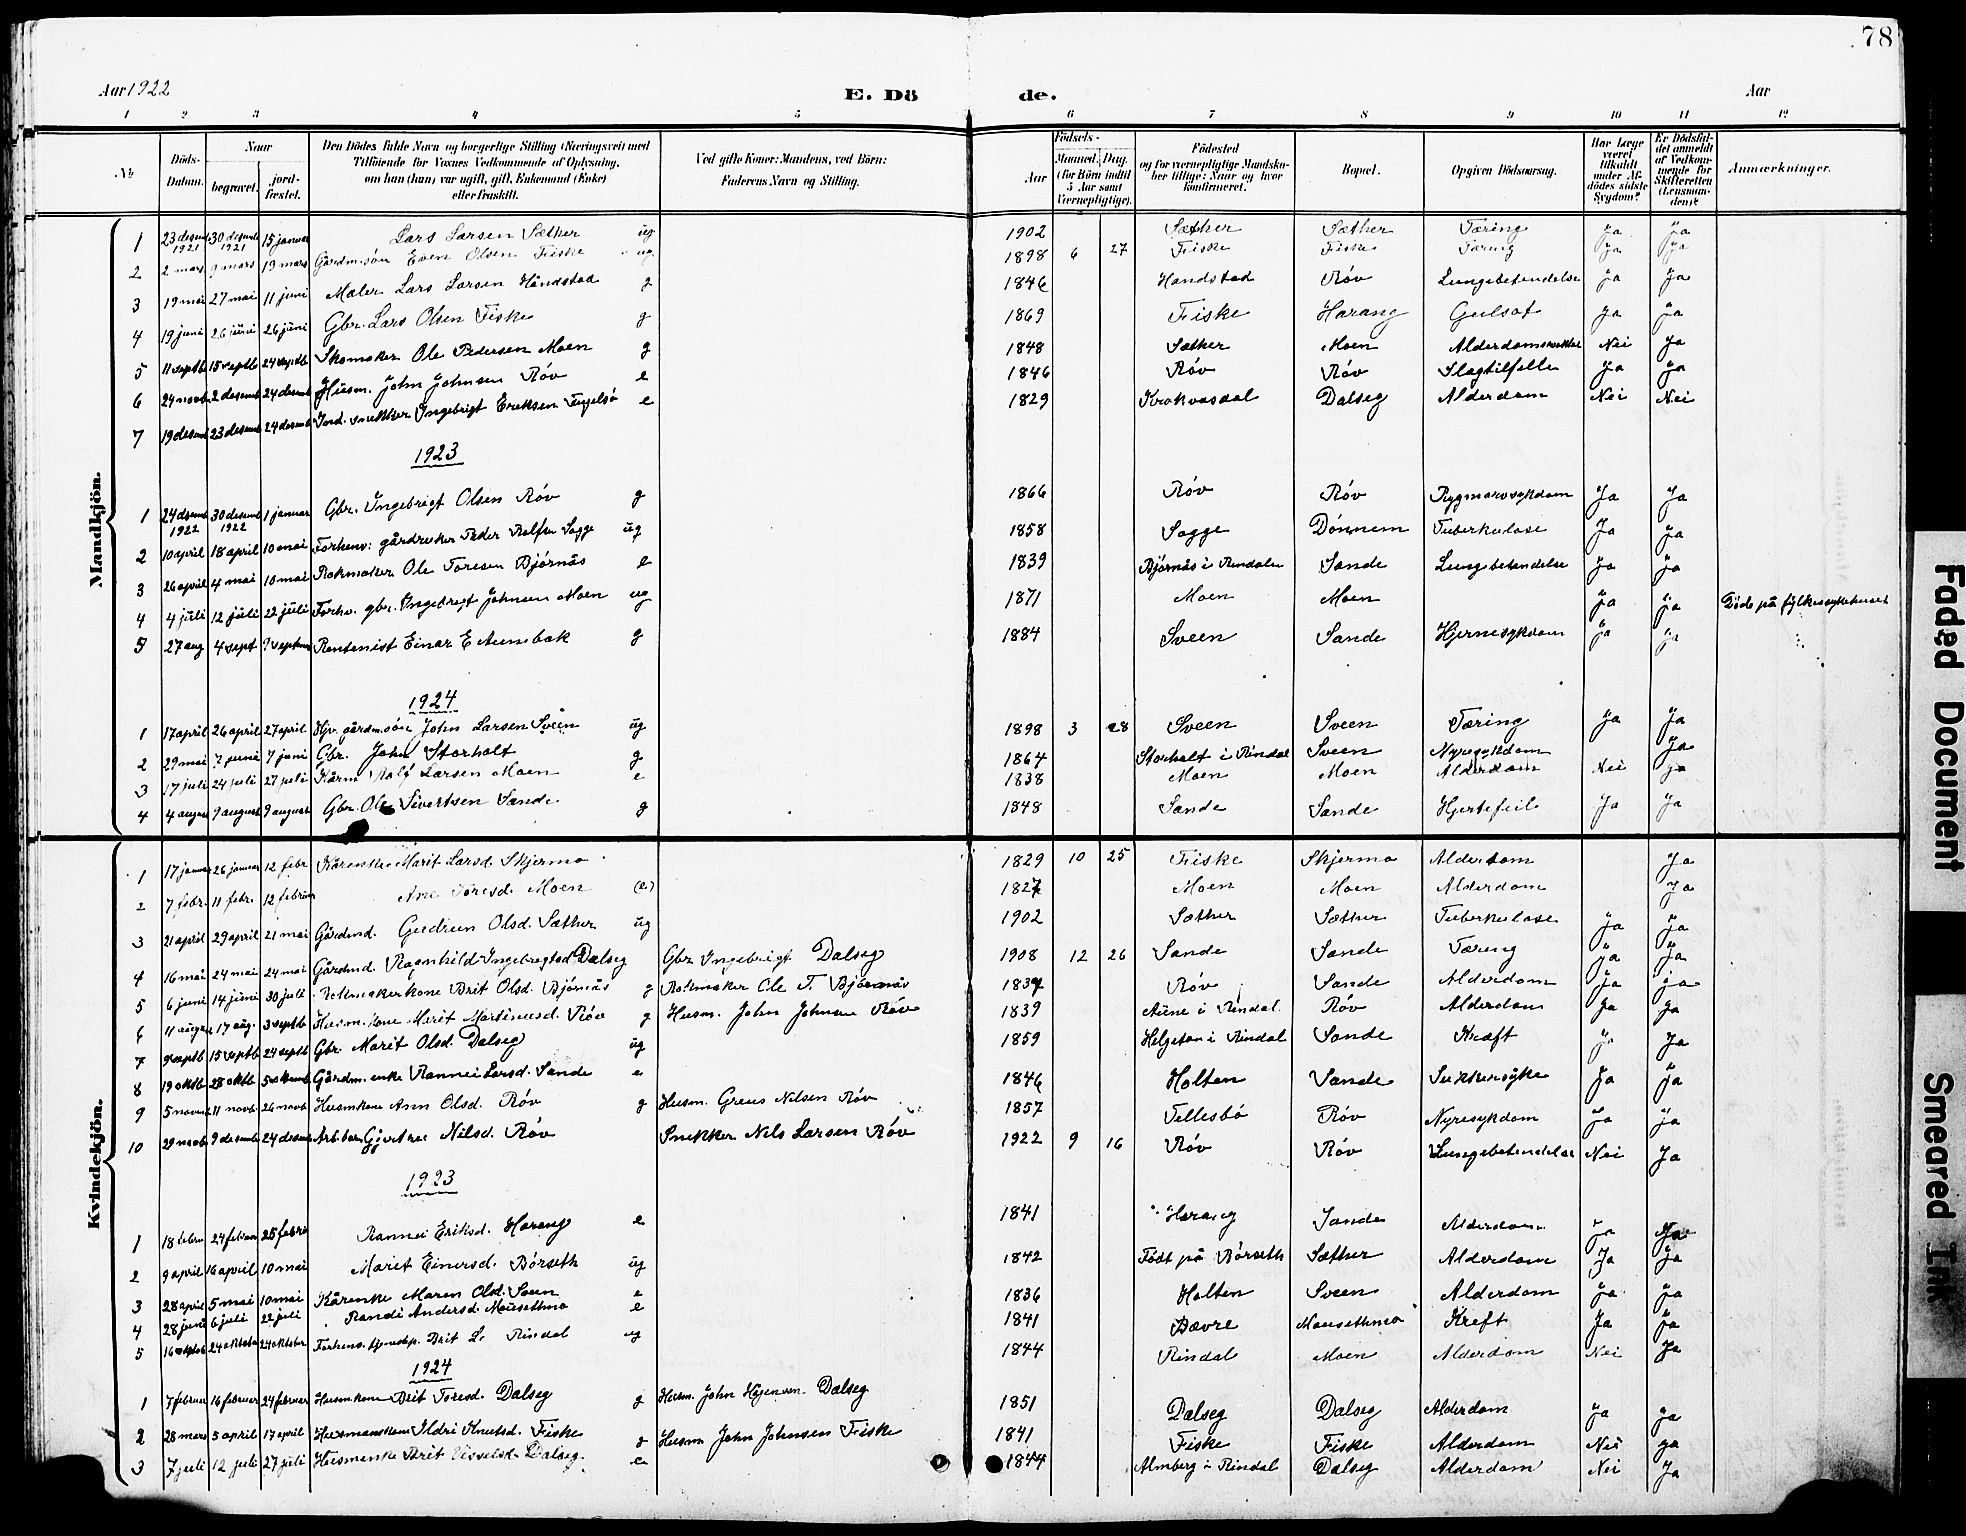 78
Aar 1922
E. Dö de.
Aar
1 2 3 4 5 6 7 8 9 10 11 12
№
Döds-Datum.
Naar
begravet.
jord-fæstet.
Den Dödes fulde Navn og borgerlige Stilling (Næringsvei) med Tilföiende for Voxnes Vedkommende af Oplysning, om han (hun) var ugift, gift, Enkemand (Enke) eller fraskilt.
Ved gifte Koner: Mandens, ved Börn: Faderens Navn og Stilling.
Födsels-
Aar
Maaned. Dag.
(for Börn indtil 5 Aar samt Værnepligtige).
Födested og for værnepligtige Mandskaber tillige: Naar og hvor konfirmeret.
Bopæl.
Opgiven Dödsaarsag.
Har Læge været tilkaldt under Afdödes sidste Sygdom?
Er Dödsfaldet anmeldt af Vedkommende for Skifteretten (Lensmanden)?
Anmærkninger.
Mandkjön.
1 23 desemb 1921 30 desemb 1921 15 januar Lars Larsen Sæther ug 1902 Sæther Sæther Tæring Ja Ja
2 2 mars 9 mars 19 mars Gårdm.sön Even Olsen Fiske ug 1898 6 27 Fiske Fiske Tæring Ja Ja
3 19 mai 27 mai 11 juni Maler Lars Larsen Håndstad g 1846 Handstad Röv Lungebetendelse Ja Ja
4 19 juni 26 juni 26 juni Gbr. Lars Olsen Fiske g 1869 Fiske Harang Gulsot Ja Ja
5 11 septb 15 septb 24 septb Skomaker Ole Pedersen Moen g 1848 Sæther Moen Alderdomssvekke Nei Ja
6 24 novb 2 desemb 24 desemb Husm. John Johnsen Röv e 1846 Röv Röv Slagtilfelle Ja Ja
7 19 desemb 23 desemb 24 desemb Ind. snekker Ingebrigt Eriksen Fugelsö e 1829 Krokvasdal Dalseg Alderdom Nei Nei
1923
1 24 desemb 1922 30 desemb 1922 1 januar Gbr. Ingebrigt Olsen Röv g 1866 Röv Röv Rygmarvsykdom Ja Ja
2 10 april 18 april 10 mai Forhenv: gårdbruker Peder Rolfsen Sogge ug 1858 Sogge Dönnem Tuberkulose Ja Ja
3 26 april 4 mai 10 mai Rokmaker Ole Toresen Björnås e 1839 Björnås i Rindalen Sande Lungebetendelse Ja Ja
4 4 juli 12 juli 22 juli Forhv. gbr. Ingebrigt Johnsen Moen ug 1871 Moen Moen Ja Ja Döde på fylkessykehuset
5 27 aug 4 sept 9 septem Rentenist Einar E Aunebak g 1884 Sveen Sande Hjernesykdom Ja Ja
1924
1 17 april 26 april 27 april Hjv. gårdm.sön John Larsen Sveen ug 1898 3 28 Sveen Sveen Tæring Ja Ja
2 29 mai 7 juni 7 juni Gbr. John Storholt g 1864 Storholt i Rindal Sveen Nyresykdom Ja
3 17 juli 24 juli 27 juli Kårm Rolf Larsen Moen e 1838 Moen Moen Alderdom Nei Ja
4 4 august 9 august 9 august Gbr. Ole Sivertsen Sande g 1848 Sande Sande Hjertefeil Ja Ja
Kvindekjön.
1 17 januar 26 januar 12 febr Kårenke Marit Larsd. Skjermo 1829 10 25 Fiske Skjermo Alderdom Ja
2 7 febr. 11 febr. 12 februar Ane Toresd. Moen (e) 1827 Moen Moen Alderdom Ja
3 21 april 29 april 21 mai Gårdmd. Gudrun Olsd. Sæther ug 1902 Sæther Sæther Tuberkulose Ja Ja
4 16 mai 24 mai 24 mai Gårdmd. Ragnhild Ingebrigtsd Dalseg Gbr Ingebrigt Dalseg 1908 12 26 Sande Sande Tæring Ja Ja
5 6 juni 14 juni 30 juli Rokmakerkone Brit Olsd. Björnås g Rokmaker Ole T. Björnås 1837 Röv Sande Alderdom Ja Ja
6 11 august 17 aug. 3 septb Husm. kone Marit Martinusd. Röv g Husm. John Johnsen Röv 1839 Aune i Rindal. Röv Alderdom Ja Ja
7 9 septb 15 septb 24 septb Gbr. Marit Olsd. Dalseg ug 1859 Helgeton i Rindal Sande Kræft Ja Ja
8 19 oktb 28 oktb 5 novemb Gårdm. enke Rannei Larsd. Sande e 1846 Holten Sande Sukkersyke Ja Ja
9 5 novemb 11 novb 26 novb Husmkone Ann Olsd. Röv g Husm. Greus Nilsen Röv 1857 Tellesbö Röv Nyresykdom Ja Ja
10 29 novb 9 desemb 24 desem Arb. barn Gjertrue Nilsd. Röv Snekker Nils Larsen Röv 1922 9 16 Röv Röv Lungebetendelse Nei Ja
1923
1 18 febru 24 februar 25 febru Rannei Eriksd. Harang e 1841 Harang Sande Alderdom Ja Ja
2 9 april 16 april 10 mai Marit Einersd. Börseth ug 1842 Född på Börseth Sæther Alderdom Ja Ja
3 28 april 5 mai 10 mai Kårenke Maren Olsd. Sveen e 1836 Holten Sveen Alderdom Ja Ja
4 28 juni 6 juli 22 juli Randi Andersd. Mousethmo e 1841 Bævre Mousethmo Kreft Ja Ja
5 16 oktob 24 oktober 24 oktober Forhenv. tjenestep. Brit L. Rindal ug 1844 Rindal Moen Alderdom Nei Ja
1924
1 7 februar 16 februar 24 februar Husmkone Brit Toresd. Dalseg g Husm. John Hagensen Dalseg 1851 Dalseg Dalseg Alderdom Ja Ja
2 28 mars 5 april 17 april Husmannskone Ildri Knutsd. Fiske g Husm John Johnsen Fiske 1841 Fiske Fiske Alderdom Nei Ja
3 7 juli 12 juli 27 juli Husmenke Brit Sivertsd. Dalseg. e 1844 Almberg i Rindal Dalseg Alderdom Nei Ja
Faded Document
Smeared Ink